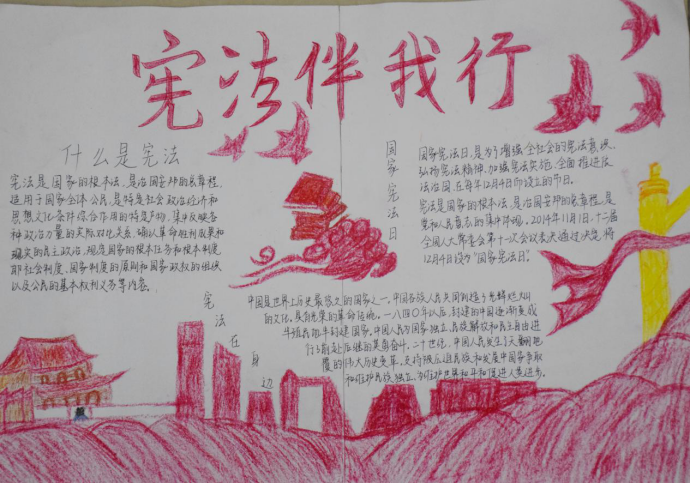 宪法伴我行
什么是宪法
宪法是国家的根本法,是治国安邦的总章程,
适用于国家全体公民,是特定社会政治经济和
思想文化条件综合作用的产物,集中反映各
种政治力量的实际对比关系,确认革命胜利成果和
现实的民主政治,规定国家的根本任务和根本制度,
即社会制度、国家制度的原则和国家政权的组织
以及公民的基本权利义务等内容。
国家宪法日
国家宪法日,是为了增强全社会的宪法意识,
弘扬宪法精神,加强宪法实施,全面推进依
法治国,在每年12月4日而设立的节日。
宪法是国家的根本法,是治国安邦的总章程,是
党和人民意志的集中体现。2014年11月1日,十二届
全国人大常委会第十一次会议表决通过决定,将
12月4日设为“国家宪法日”。
宪法在身边
中国是世界上历史最悠久的国家之一。中国各族人民共同创造了光辉灿烂
的文化,具有光荣的革命传统。一八四〇年以后,封建的中国逐渐变成
半殖民地半封建国家。中国人民为国家独立、民族解放和民主自由进
行了前赴后继的英勇奋斗。二十世纪,中国人民发生了天翻地
覆的伟大历史变革。支持被压迫民族和发展中国家争取
和维护民族独立、为维护世界和平和促进人类进步。